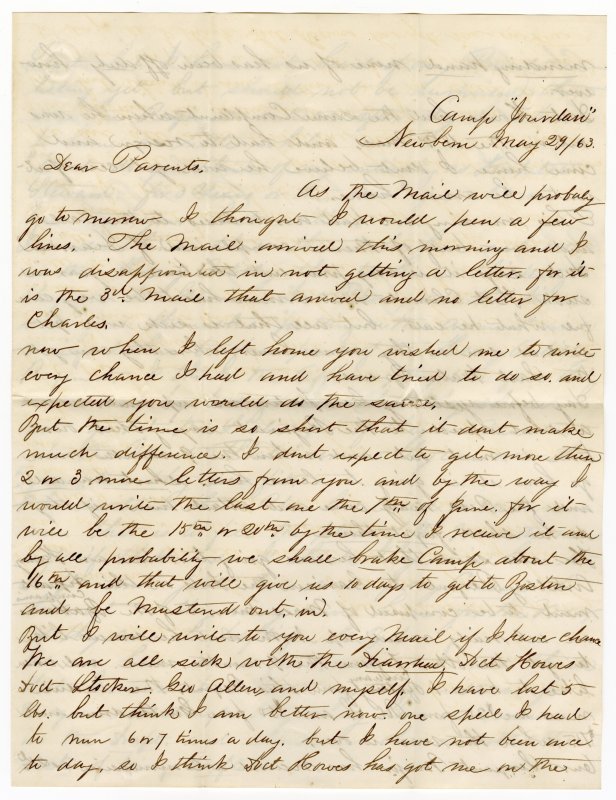 Camp "Jourdan"
Newbern May 29/63.
Dear Parents.
As the Mail will probaly
go to morrow I thought I would pen a few
lines. The Mail arrived this morning and I
was disappointed in not getting a letter. for it
is the 3d. Mail that arrived and no letter for
Charles.
now when I left home you wished me to write
every chance I had and have tried to do so. and
expected you would do the same.
But the time is so short that it dont make
much difference. I dont expect to get more then
2 or 3 more letters from you. and by the way I
would write the last one the 7th of June. for it
will be the 15th or 20th by the time I receive it and
by all probability we shall brake Camp about the
16th and that will give us 10 days to get to Boston
and be Musterd out, in.
But I will write to you every Mail if I have chance
We are all sick with the Diarrhea, Doct Howes
Doct Stocker. Geo Allen, and myself I have lost 5
lbs. but think I am better now. one speil I had
to run 6 or 7 times a day. but I have not been once
to day, so I think Doct Howes has got me on the